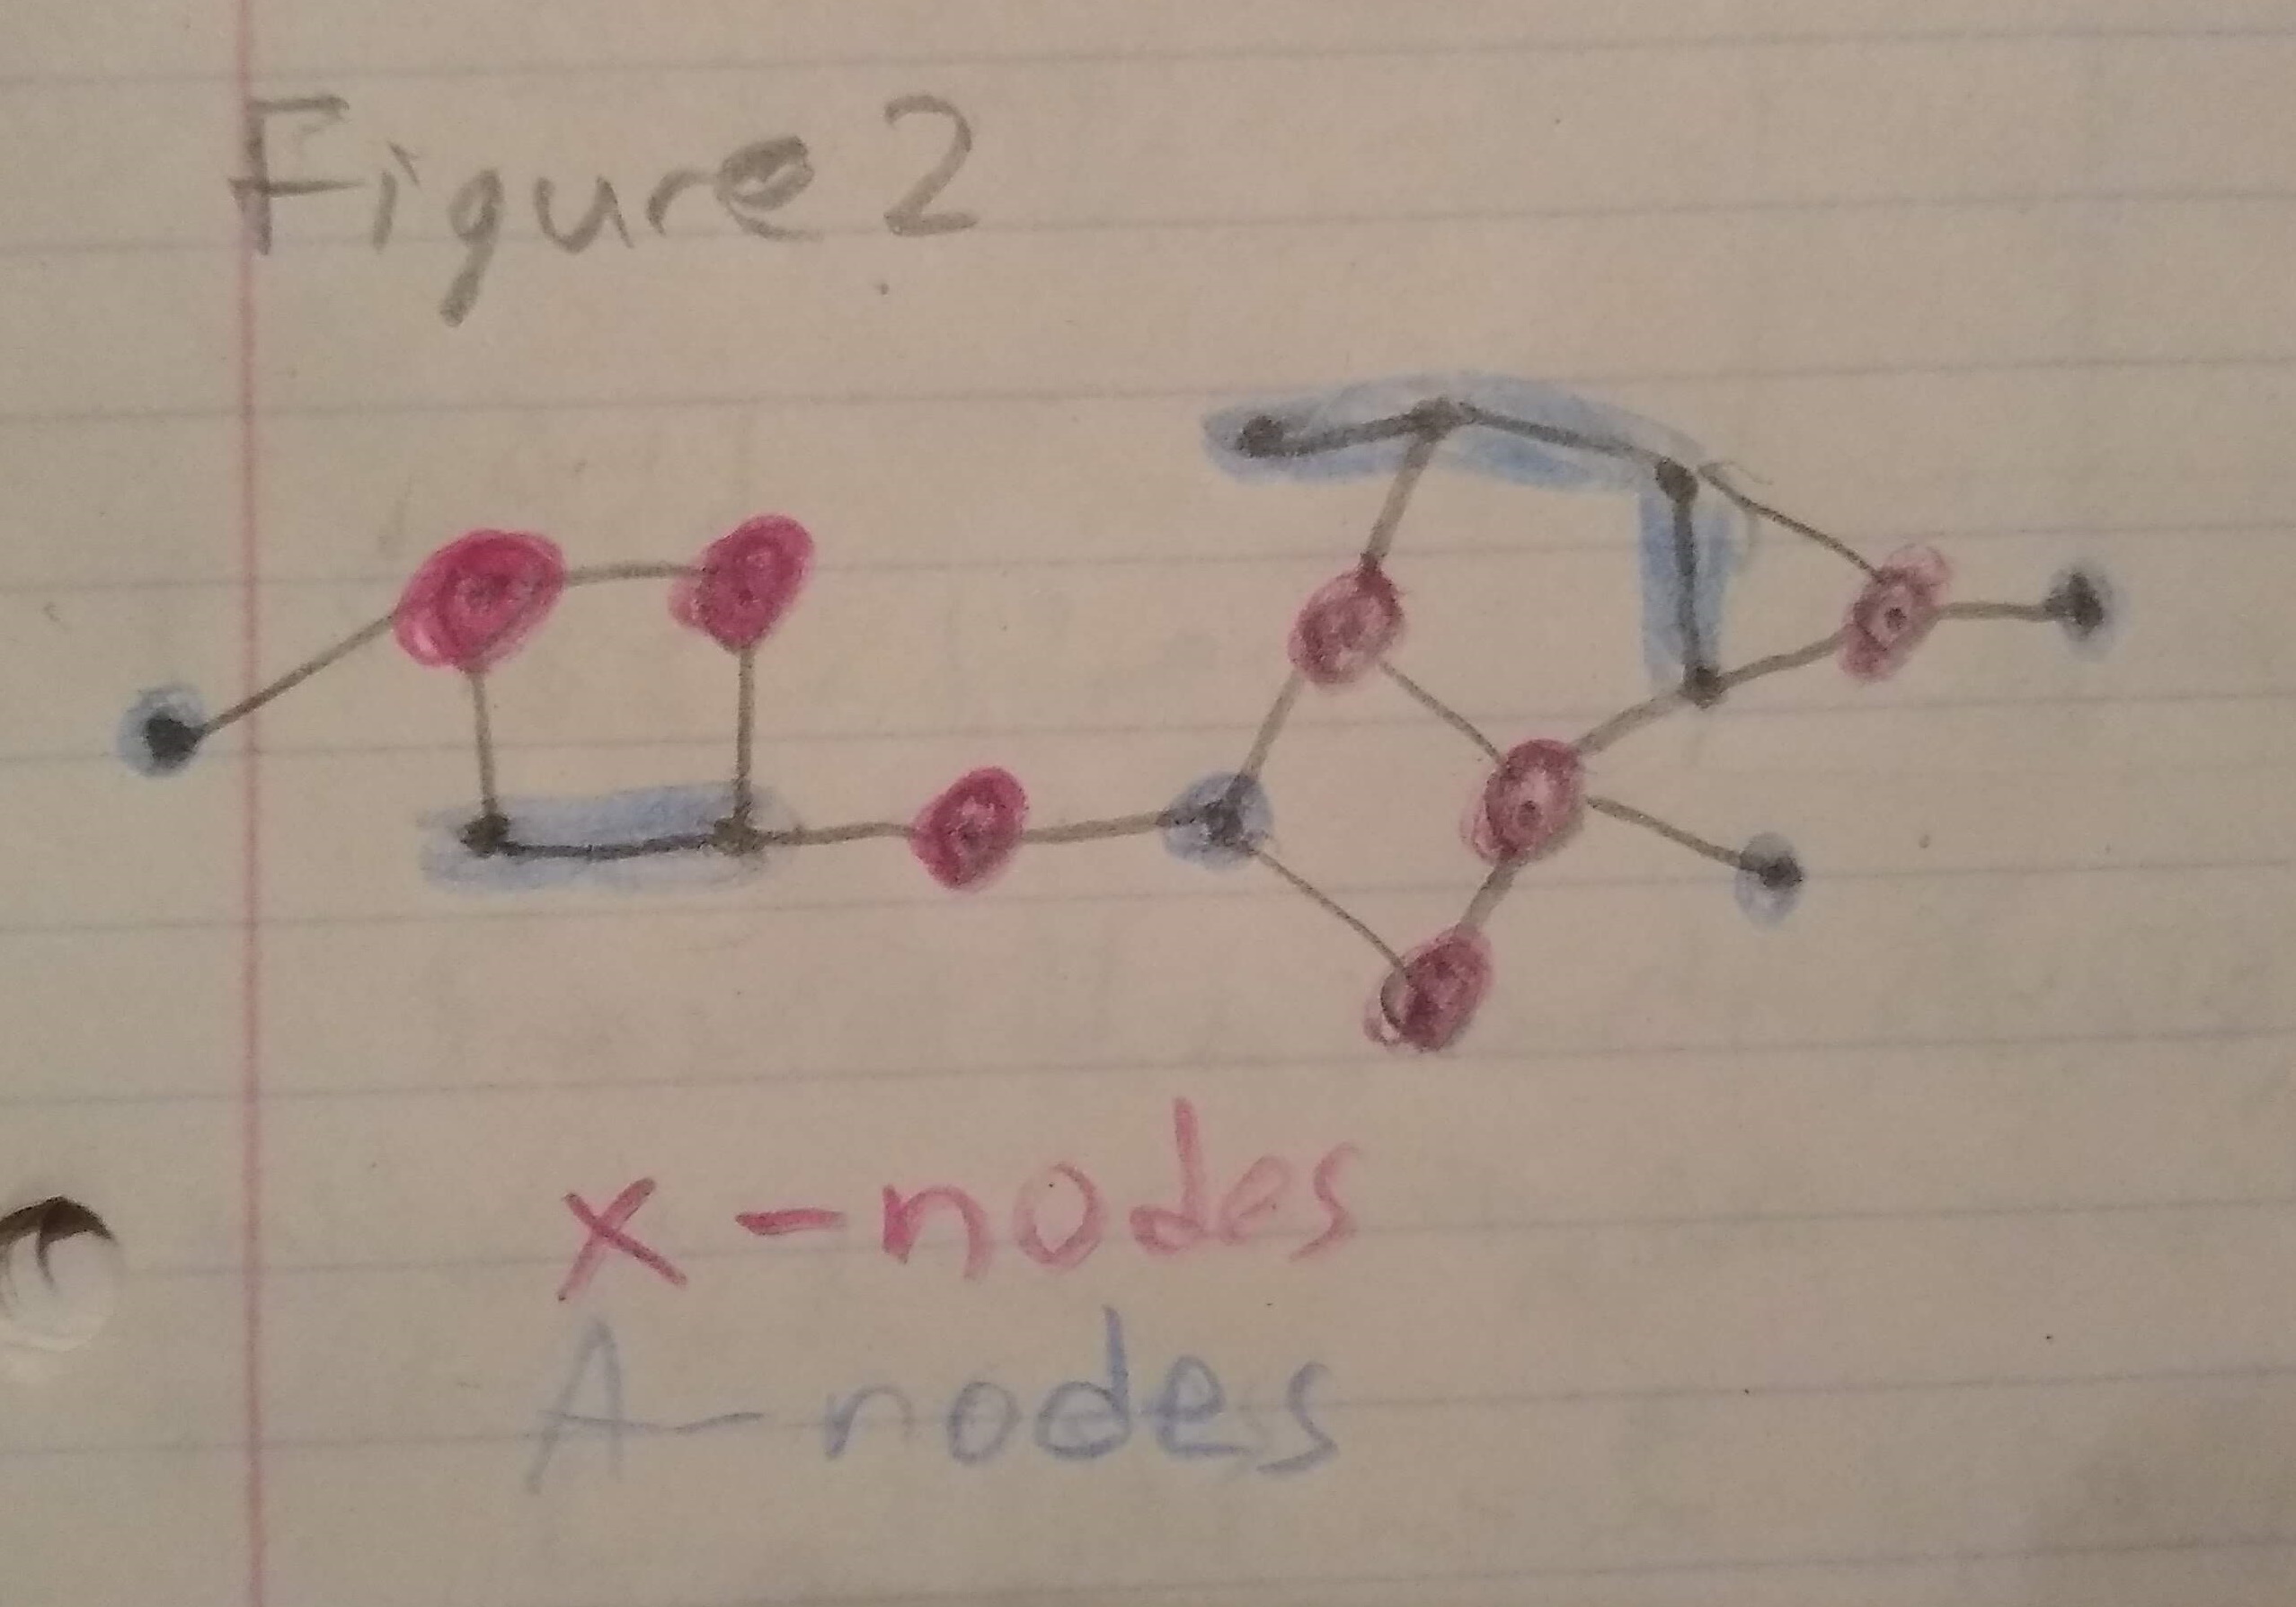 Figure 2
x-nodes
A-nodes